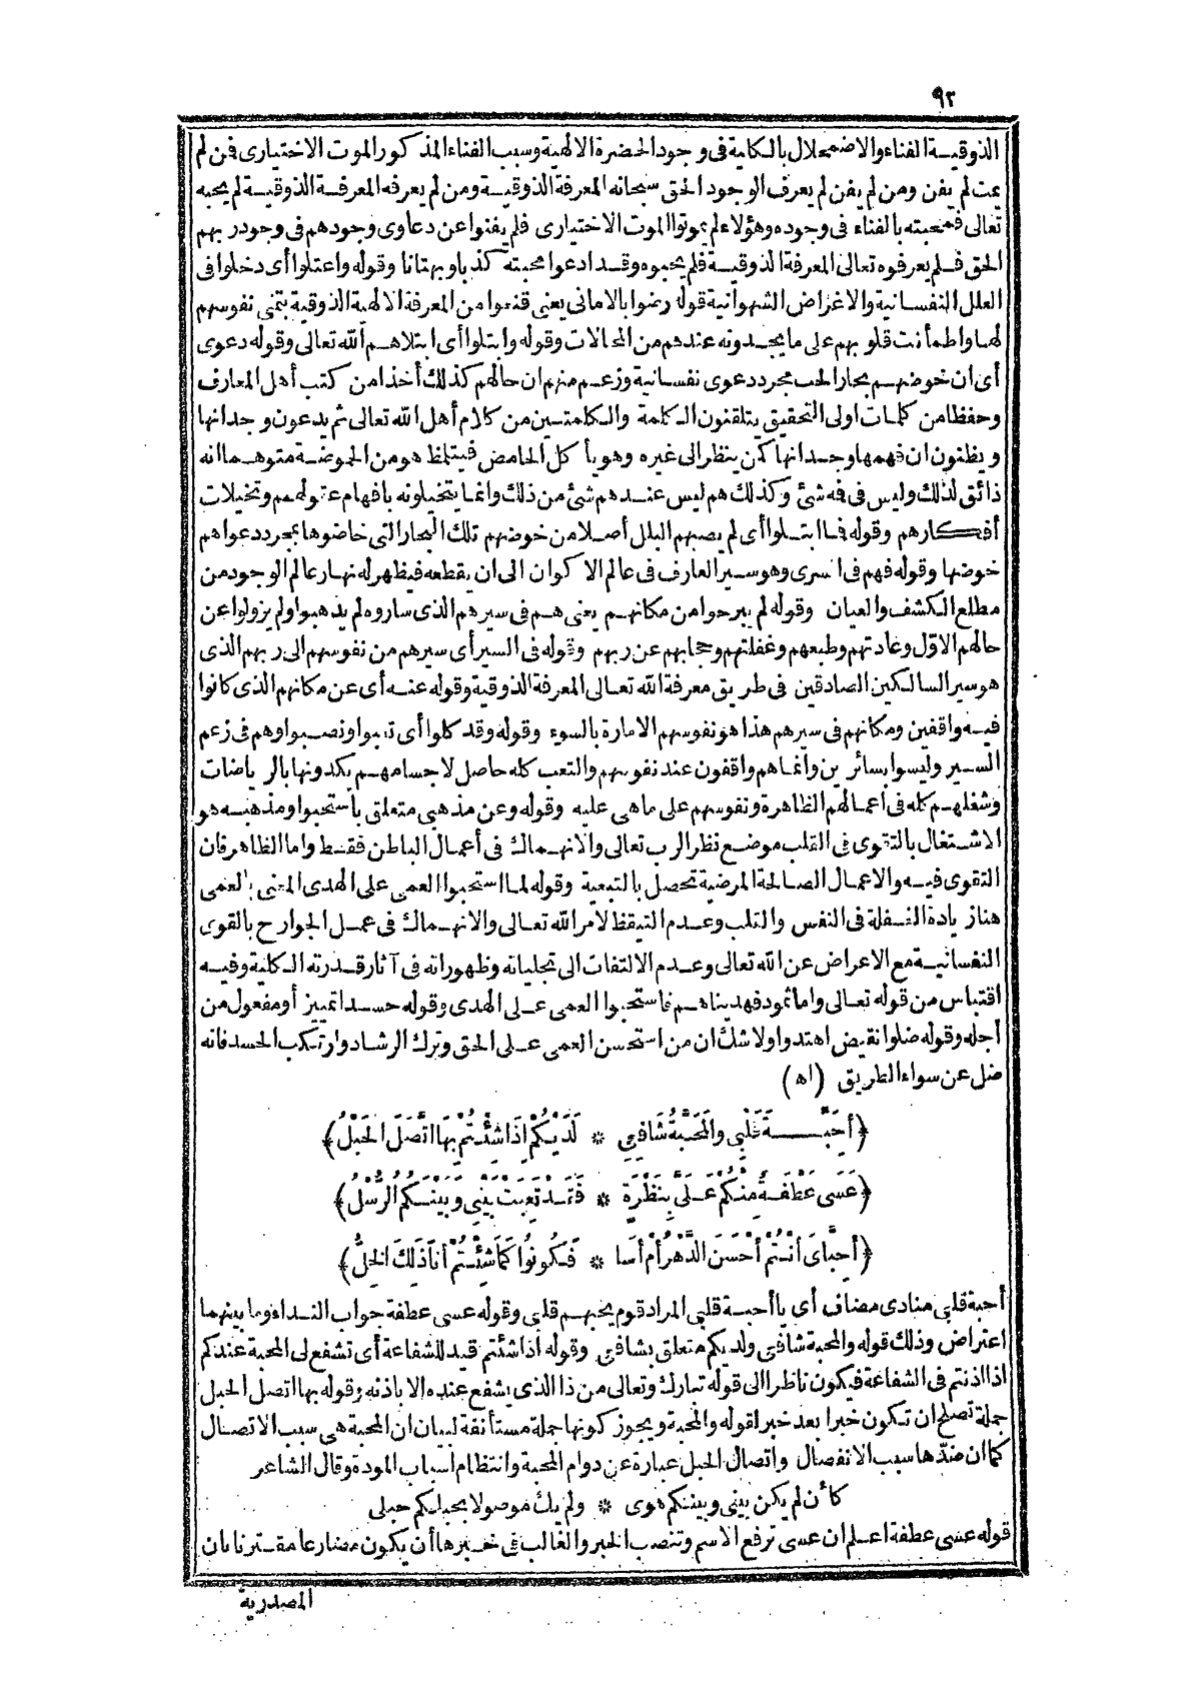 ٩٢
الذوقية الفناء والاضمحلال بالكلية فى وجود الحضرة الالهية وسبب الفناء المذكور الموت الاختيارى فمن لم
يمت لم يفن ومن لم يفن لم يعرف الوجود الحق سبحانه المعرفة الذوقية ومن لم يعرفه المعرفة الذوقية لم يحبه
تعالى فمحبته بالفناء فى وجوده وهؤلاء لم يموتوا الموت الاختيارى فلم يفنوا عن دعاوى وجودهم فى وجود ربهم
الحق فلم يعرفوه تعالى المعرفة الذوقية فلم يحبوه وقد ادعوا محبته كذبا وبهتانا وقوله واعتلوا أى دخلوا فى
العلل النفسانية والاغراض الشهوانية قوله رضوا بالامانى يعنى قنعوا من المعرفة الالهية الذوقية بتمنى نفوسهم
لها واطمأنت قلوبهم على ما يجدونه عندهم من المحالات وقوله وابتلوا أى ابتلاهم الله تعالى وقوله دعوى
أى ان خوضهم بحار الحب مجرد دعوى نفسانية وزعم منهم ان حالهم كذلك أخذا من كتب أهل المعارف
وحفظا من كلمات اولى التحقيق يتلقنون الكلمة والكلمتين من كلام أهل الله تعالى ثم يدعون وجدانها
ويظنون ان فهمها وجدانها كمن ينظر الى غيره وهو يأكل الحامض فيتلمظ هو من الحموضة متوهما انه
ذائق لذلك وليس فى فه شئ وكذلك هم ليس عندهم شئ من ذلك وانما يتخيلونه بافهام عقولهم وتخيلات
أفكارهم وقوله فما ابتلوا أى لم يصبهم البلل أصلا من خوضهم تلك البحار التى خاضوها بمجرد دعواهم
خوضها وقوله فهم فى السرى وهو سير العارف فى عالم الاكوان الى ان يقطعه فيظهر له نهار عالم الوجود من
مطلع الكشف والعيان وقوله لم يبرحوا من مكانهم يعنى هم فى سيرهم الذى ساروه لم يذهبوا ولم يزولوا عن
حالهم الاوّل وعادتهم وطبعهم وغفلتهم وحجابهم عن ربهم وقوله فى السير أى سيرهم من نفوسهم الى ربهم الذى
هو سير السالكين الصادقين فى طريق معرفة الله تعالى المعرفة الذوقية وقوله عنه أى عن مكانهم الذى كانوا
فيه واقفين ومكانهم فى سيرهم هذا هو نفوسهم الامارة بالسوء وقوله وقد كلوا أى تعبوا ونصبوا وهم فى زعم
السير وليسوا بسائرين وانما هم واقفون عند نفوسهم والتعب كله حاصل لاجسامهم بكدونها بالرياضات
وشغلهم كله فى أعمالهم الظاهرة ونفوسهم على ماهى عليه وقوله وعن مذهبى متعلق باستحبوا ومذهبه هو
الاشتغال بالتقوى فى القلب موضع نظر الرب تعالى والانهماك فى أعمال الباطن فقط واما الظاهر فان
التقوى فيه والاعمال الصالحة المرضية تحصل بالتبعية وقوله لما استحبوا العمى على الهدى المعنى بالعمى
هنا زيادة الغفلة فى النفس والقلب وعدم التيقظ لامر الله تعالى والانهماك فى عمل الجوارح بالقوى
النفسانية مع الاعراض عن الله تعالى وعدم الالتفات الى تجلياته وظهوراته فى آثار قدرته الكلية وفيه
اقتباس من قوله تعالى واما ثمود فهديناهم فاستحبوا العمى على الهدى وقوله حسدا تمييز أو مفعول من
أجله وقوله ضلوا نقيض اهتدوا ولا شك ان من استحسن العمى على الحق وترك الرشاد وارتكب الحسد فانه
ضل عن سواء الطريق (اه)
﴿أَحِبَّـةَ قَلْبِي والمَحَبَّةُ شَافِعِي * لَدَيْكُمْ إذَا شِئْتُمْ بِهَا اتَّصَلَ الحَبْلُ﴾
﴿عَسَى عَطْفَةٌ مِنْكُمْ عَلَيَّ بِنَظْرَةٍ * فَقَدْ تَعِبَتْ بَيْنِي وَبَيْنَكُمُ الرُّسْلُ﴾
﴿أَحِبَّايَ أَنْتُمْ أَحْسَنَ الدَّهْرُ أَمْ أَسَا * فَكُونُوا كَمَا شِئْتُمْ أَنَا ذَلِكَ الخِلُّ﴾
أحبة قلبى منادى مضاف أى يا أحبة قلبى المراد قوم يحبهم قلبى وقوله عسى عطفة جواب النداء وما بينهما
اعتراض وذلك قوله والمحبة شافعى ولديكم متعلق بشافعى وقوله اذا شئتم قيد للشفاعة أى تشفع لى المحبة عندكم
اذا اذنتم فى الشفاعة فيكون ناظرا الى قوله تبارك وتعالى من ذا الذى يشفع عنده الا باذنه وقوله بها اتصل الحبل
جملة تصلح ان تكون خبرا بعد خبر لقوله والمحبة ويجوز كونها جملة مستأنفة لبيان ان المحبة هى سبب الاتصال
كما ان ضدّها سبب الانفصال واتصال الحبل عبارة عن دوام المحبة وانتظام أسباب المودة وقال الشاعر
كأن لم يكن بينى وبينكم هوى * ولم يك موصولا بحبلكم حبلى
قوله عسى عطفة اعلم ان عسى ترفع الاسم وتنصب الخبر والغالب فى خبرها أن يكون مضارعا مقترنا بان
المصدرية